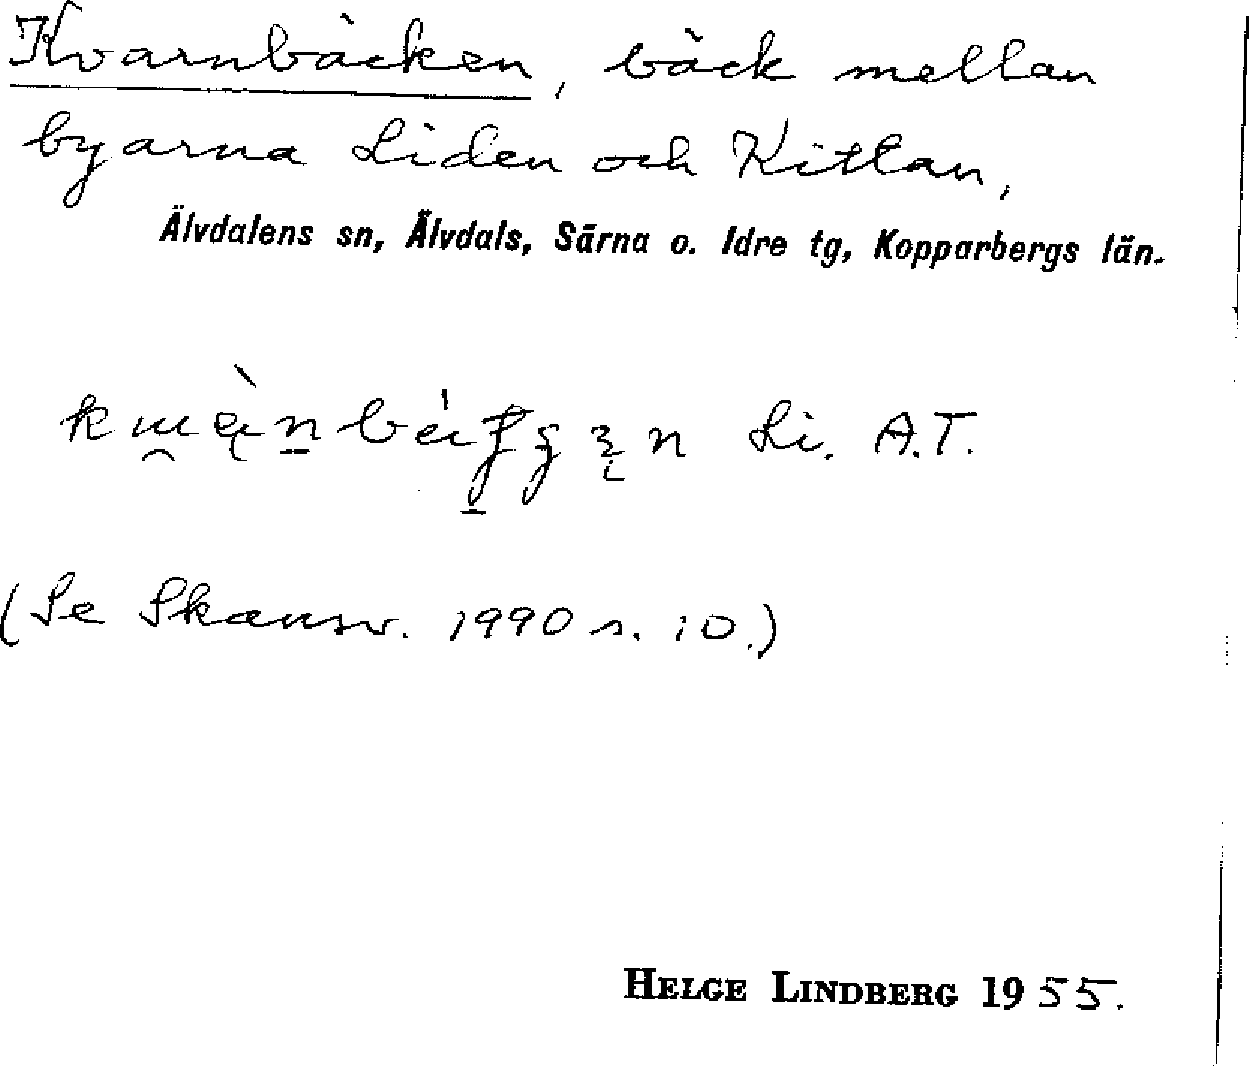 Kvarnbäcken, bäck mellan
byarna Liden och Kittan,
Älvdalens sn, Älvdals, Särna o. Idre tg, Kopparbergs län.
Li. A.T.
(Se Skansv. 1990 s. 10.)
HELGE LINDBERG 1955.